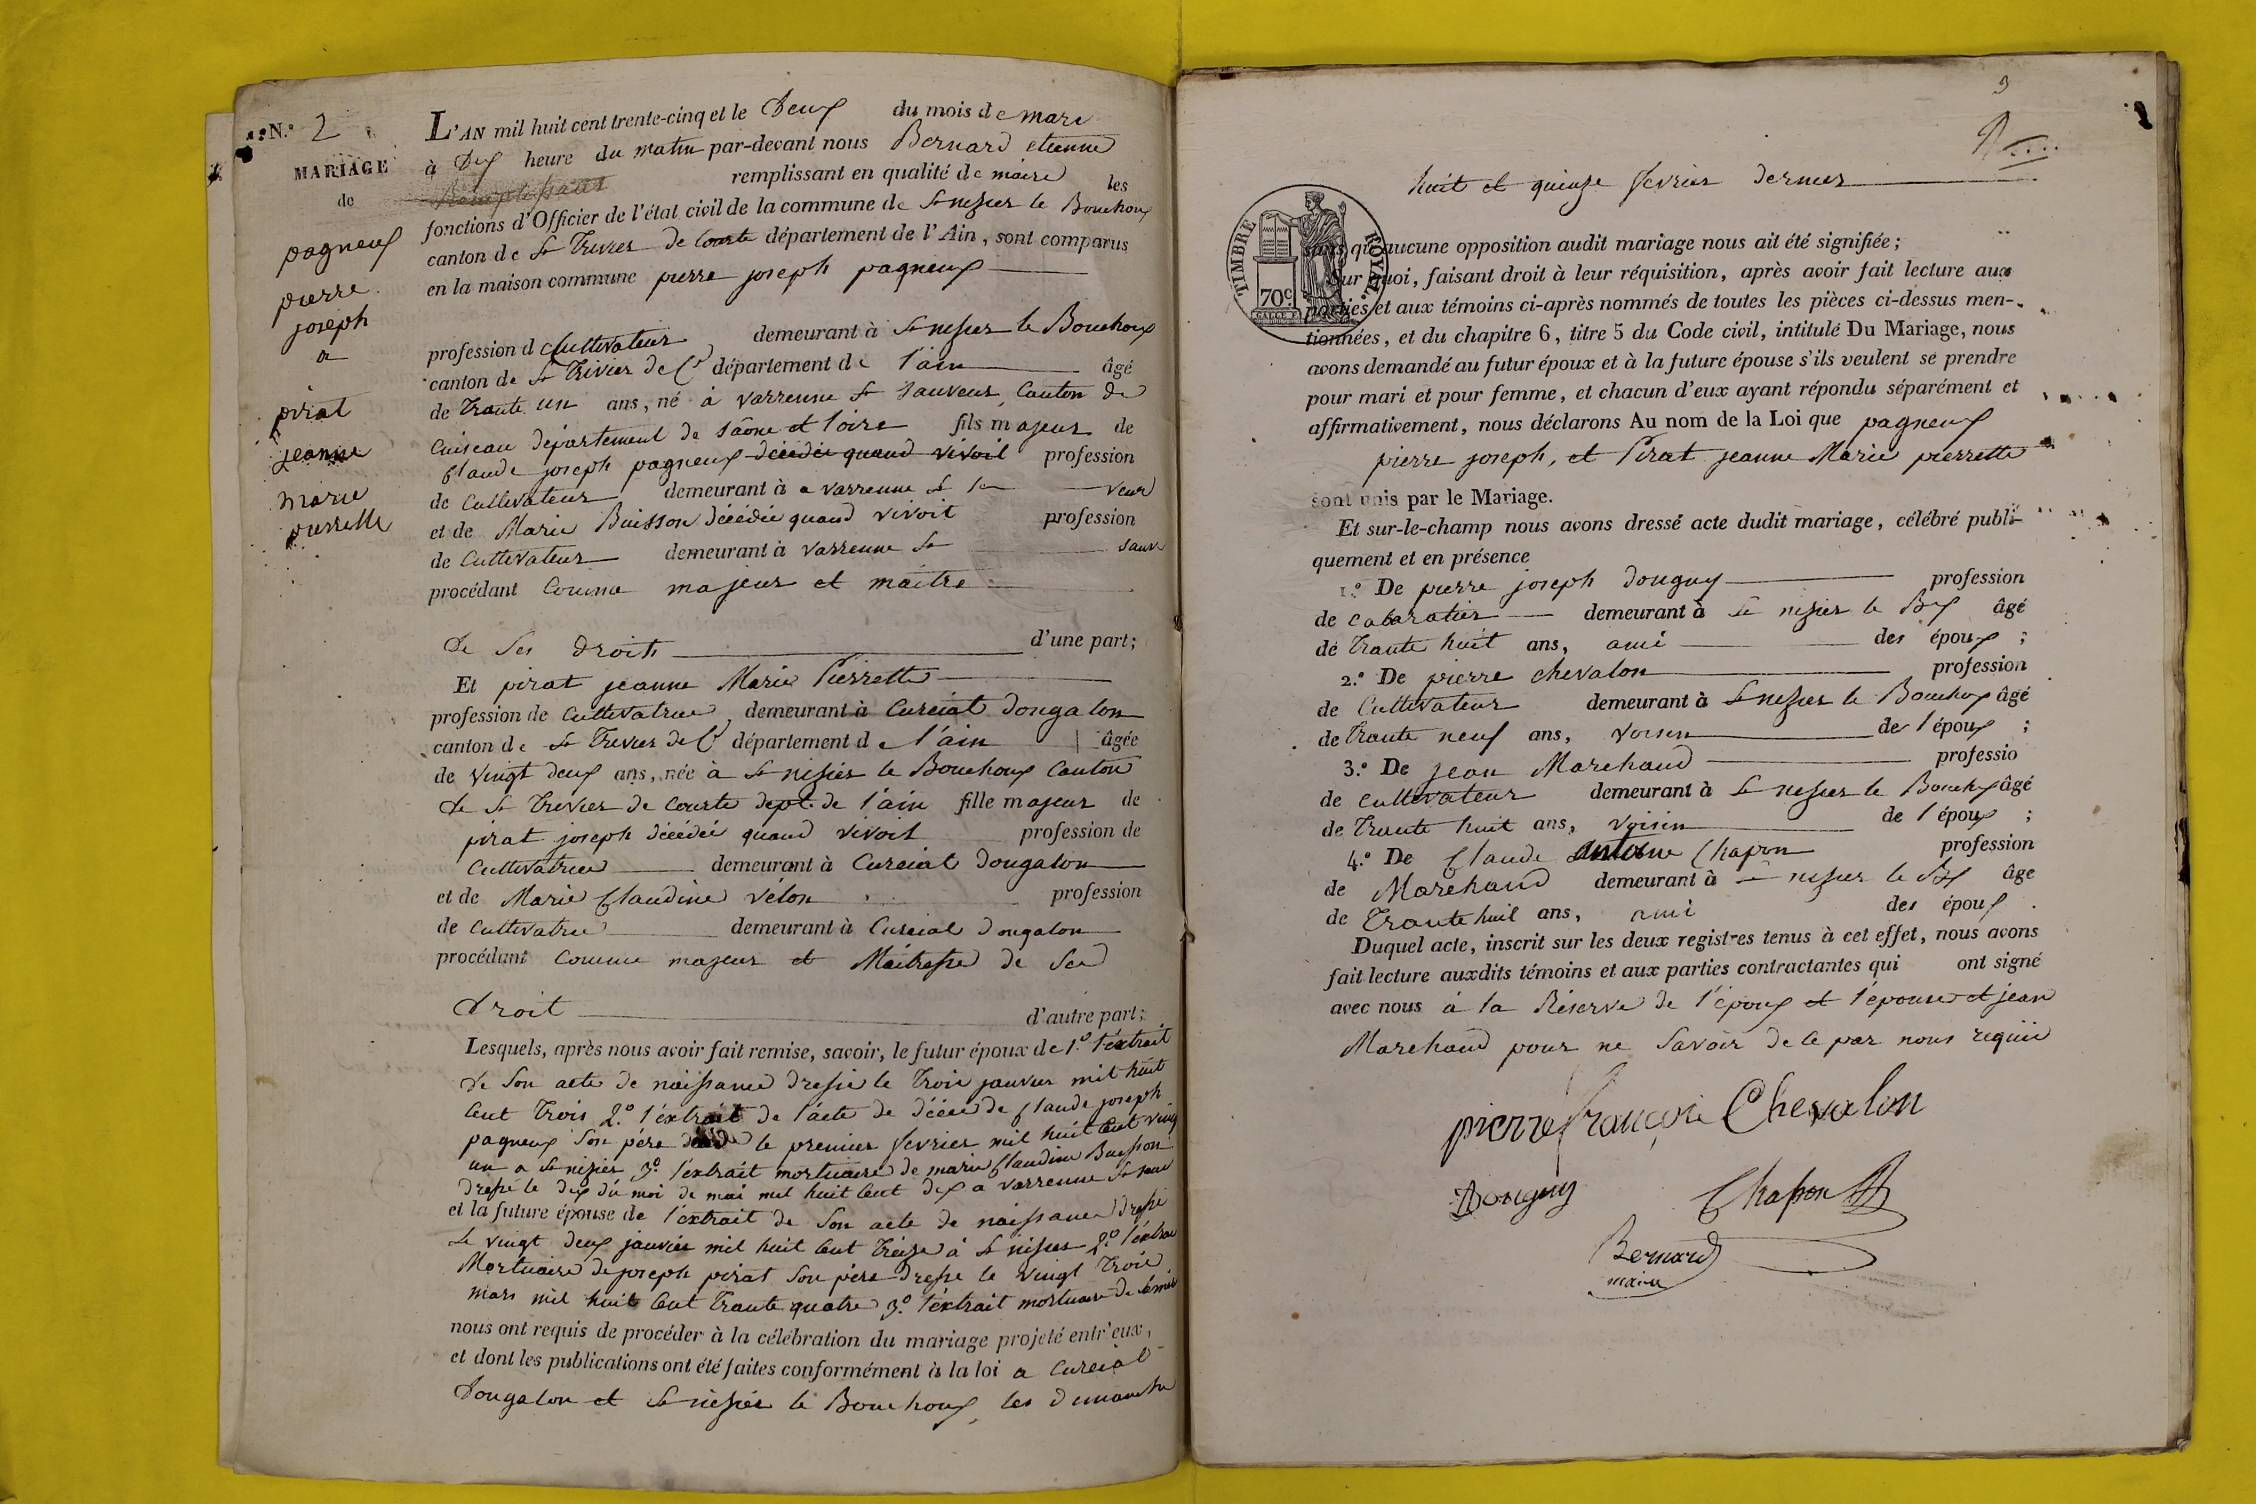 N.º 2
MARIAGE
de
pagneux
pierre
joseph
a
pirat
jeanne
marie
pierrette
L'AN mil huit cent trente-cinq et le Deux du mois de mars
à Dix heure du matin par-devant nous Bernard etienne
remplissant en qualité de maire les
fonctions d'Officier de l'état civil de la commune de St nizier le Bouchoux
canton de St Trivier de Courte département de l'Ain, sont comparus
en la maison commune pierre joseph pagneux
profession de Cultivateur, demeurant à St nizier le Bouchoux
canton de St Trivier de Ct département de l'ain âgé
de Trante un ans, né à varrenne St Sauveur, Canton de
Cuiseau département de Sâone et Loire fils majeur de
Claude joseph pagneux décédée quand vivoit profession
de Cultivateur demeurant à a varrenne St Sau veur
et de Marie Buisson Décédée quand vivoit profession
de Cultivateur demeurant à varrenne St Sauv
procédant Comme majeur et maitre
de Ses droits d'une part;
Et pirat jeanne Marie Pierrette
profession de Cultivatrice, demeurant à Curciat Dongalon
canton de St Trivier de Ct département de l'ain âgée
de vingt deux ans, née à St nizier le Bouchoux Canton
de St Trivier de Courte dept de l'ain fille majeur de
pirat joseph Décédé quand vivoit profession de
Cultivatrice demeurant à Curciat Dongalon
et de Marie Claudine vélon profession
de Cultivatrice demeurant à Curciat Dongalon
procédant Comme majeur et Maitresse de Ses
Droit d'autre part;
Lesquels, après nous avoir fait remise, savoir, le futur époux de 1.º l'éxtrait
de Son acte de naissance dressé le Trois janvier mil huit
Cent Trois 2.º l'éxtrait de l'acte de décée de Claude joseph
pagneux Son père le premier fevrier mil huit Cent vingt
un a St nizier 3.º l'éxtrait mortuaire de marie Claudine Buisson
dressé le dix du moi de mai mil huit Cent dix a varrenne St Sauv
et la future épouse de l'éxtrait de Son acte de naissance dressé
Le vingt deux janvier mil huit Cent Treize à St nizier 2.º l'éxtrai
Mortuaire de joseph pirat Son père dressé le vingt Trois
mars mil huit Cent Trante quatre 3.º l'éxtrait mortuaire de
nous ont requis de procéder à la célébration du mariage projeté entr'eux,
et dont les publications ont été faites conformément à la loi a Curciat
Dongalon et St nizier le Bouchoux, les dimanche
3
huit et quinze fevrier dernier
TIMBRE ROYAL
70c
sans qu'aucune opposition audit mariage nous ait été signifiée;
Sur quoi, faisant droit à leur réquisition, après avoir fait lecture aux
parties et aux témoins ci-après nommés de toutes les pièces ci-dessus men-
tionnées, et du chapitre 6, titre 5 du Code civil, intitulé Du Mariage, nous
avons demandé au futur époux et à la future épouse s'ils veulent se prendre
pour mari et pour femme, et chacun d'eux ayant répondu séparément et
affirmativement, nous déclarons Au nom de la Loi que pagneux
pierre joseph, et Pirat jeanne Marie pierrette
sont unis par le Mariage.
Et sur-le-champ nous avons dressé acte dudit mariage, célébré publi-
quement et en présence
1.º De pierre joseph Donguy profession
de Cabaratier demeurant à St nizier le Bx âgé
de Trante huit ans, ami des époux;
2.º De pierre chevalon profession
de Cultivateur demeurant à St nizier le Bouchoux âgé
de Trante neuf ans, voisin de l'époux;
3.º De jean Marchand professio
de Cultivateur demeurant à St nizier le Bouchx âgé
de Trante huit ans, voisin de l'époux;
4.º De Claude antoine Chapon profession
de Marchand demeurant à St nizier le Bx âge
de Trante huit ans, ami des époux.
Duquel acte, inscrit sur les deux registres tenus à cet effet, nous avons
fait lecture auxdits témoins et aux parties contractantes qui ont signé
avec nous à la Réserve de l'époux et l'épouse et jean
Marchand pour ne Savoir de ce par nous requis
pierre françois Chevalon
Donguy Chapon
Bernard
maire